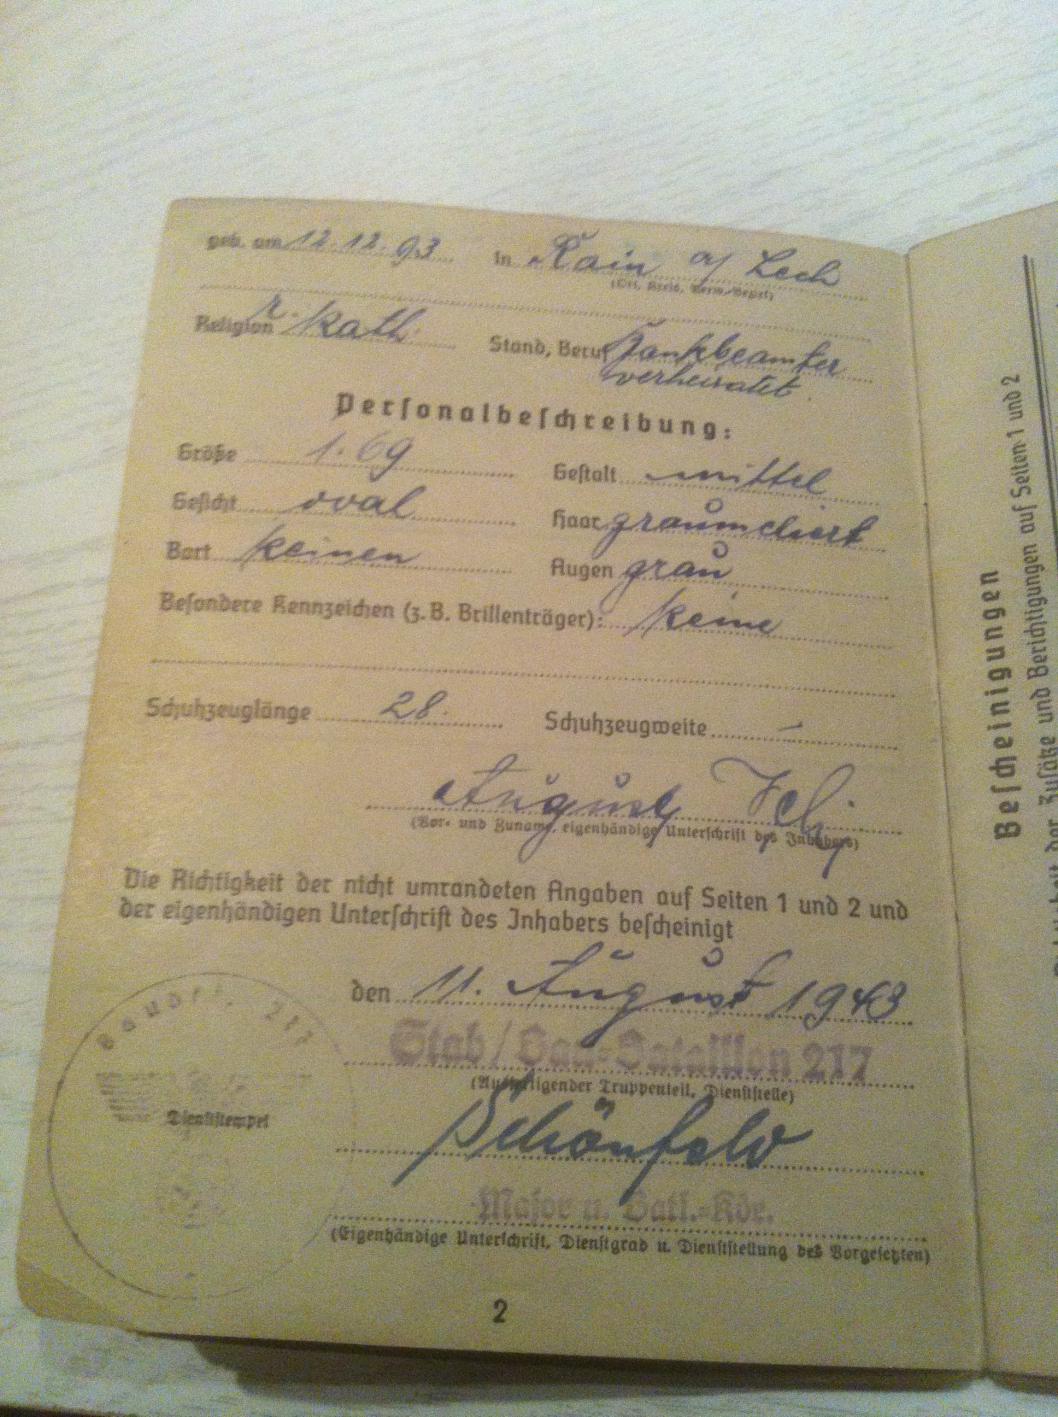 geb. am 12.12.93 in Rain a/ Lech
(Ort, Kreis, Verw.-Bezirk)
Religion r. kath. Stand, Beruf Bankbeamter
verheiratet.
Personalbeschreibung:
Größe 1.69 Gestalt mittel
Gesicht oval Haar graumeliert
Bart keinen Augen grau
Besondere Kennzeichen (z. B. Brillenträger): keine
Schuhzeuglänge 28. Schuhzeugweite –
August
(Vor- und Zuname, eigenhändige Unterschrift des Inhabers)
Die Richtigkeit der nicht umrandeten Angaben auf Seiten 1 und 2 und
der eigenhändigen Unterschrift des Inhabers bescheinigt
den 11. August 1943
Stab / Bau-Bataillon 217
(Ausfertigender Truppenteil, Dienststelle)
Schönfeld
Major u. Batl.-Kdr.
(Eigenhändige Unterschrift, Dienstgrad u. Dienststellung des Vorgesetzten)
217
Dienststempel
2
Bescheinigungen
der Zusätze und Berichtigungen auf Seiten 1 und 2